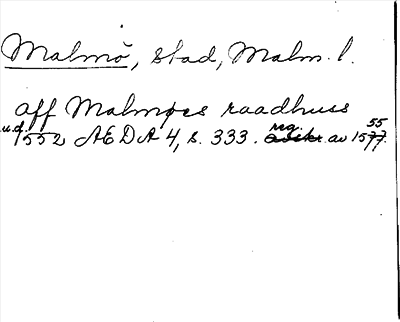 Malmö, stad, Malm. l.
aff Malmøes raadhuss
u.d. 1552 AEDA 4, s. 333. rg av 1555